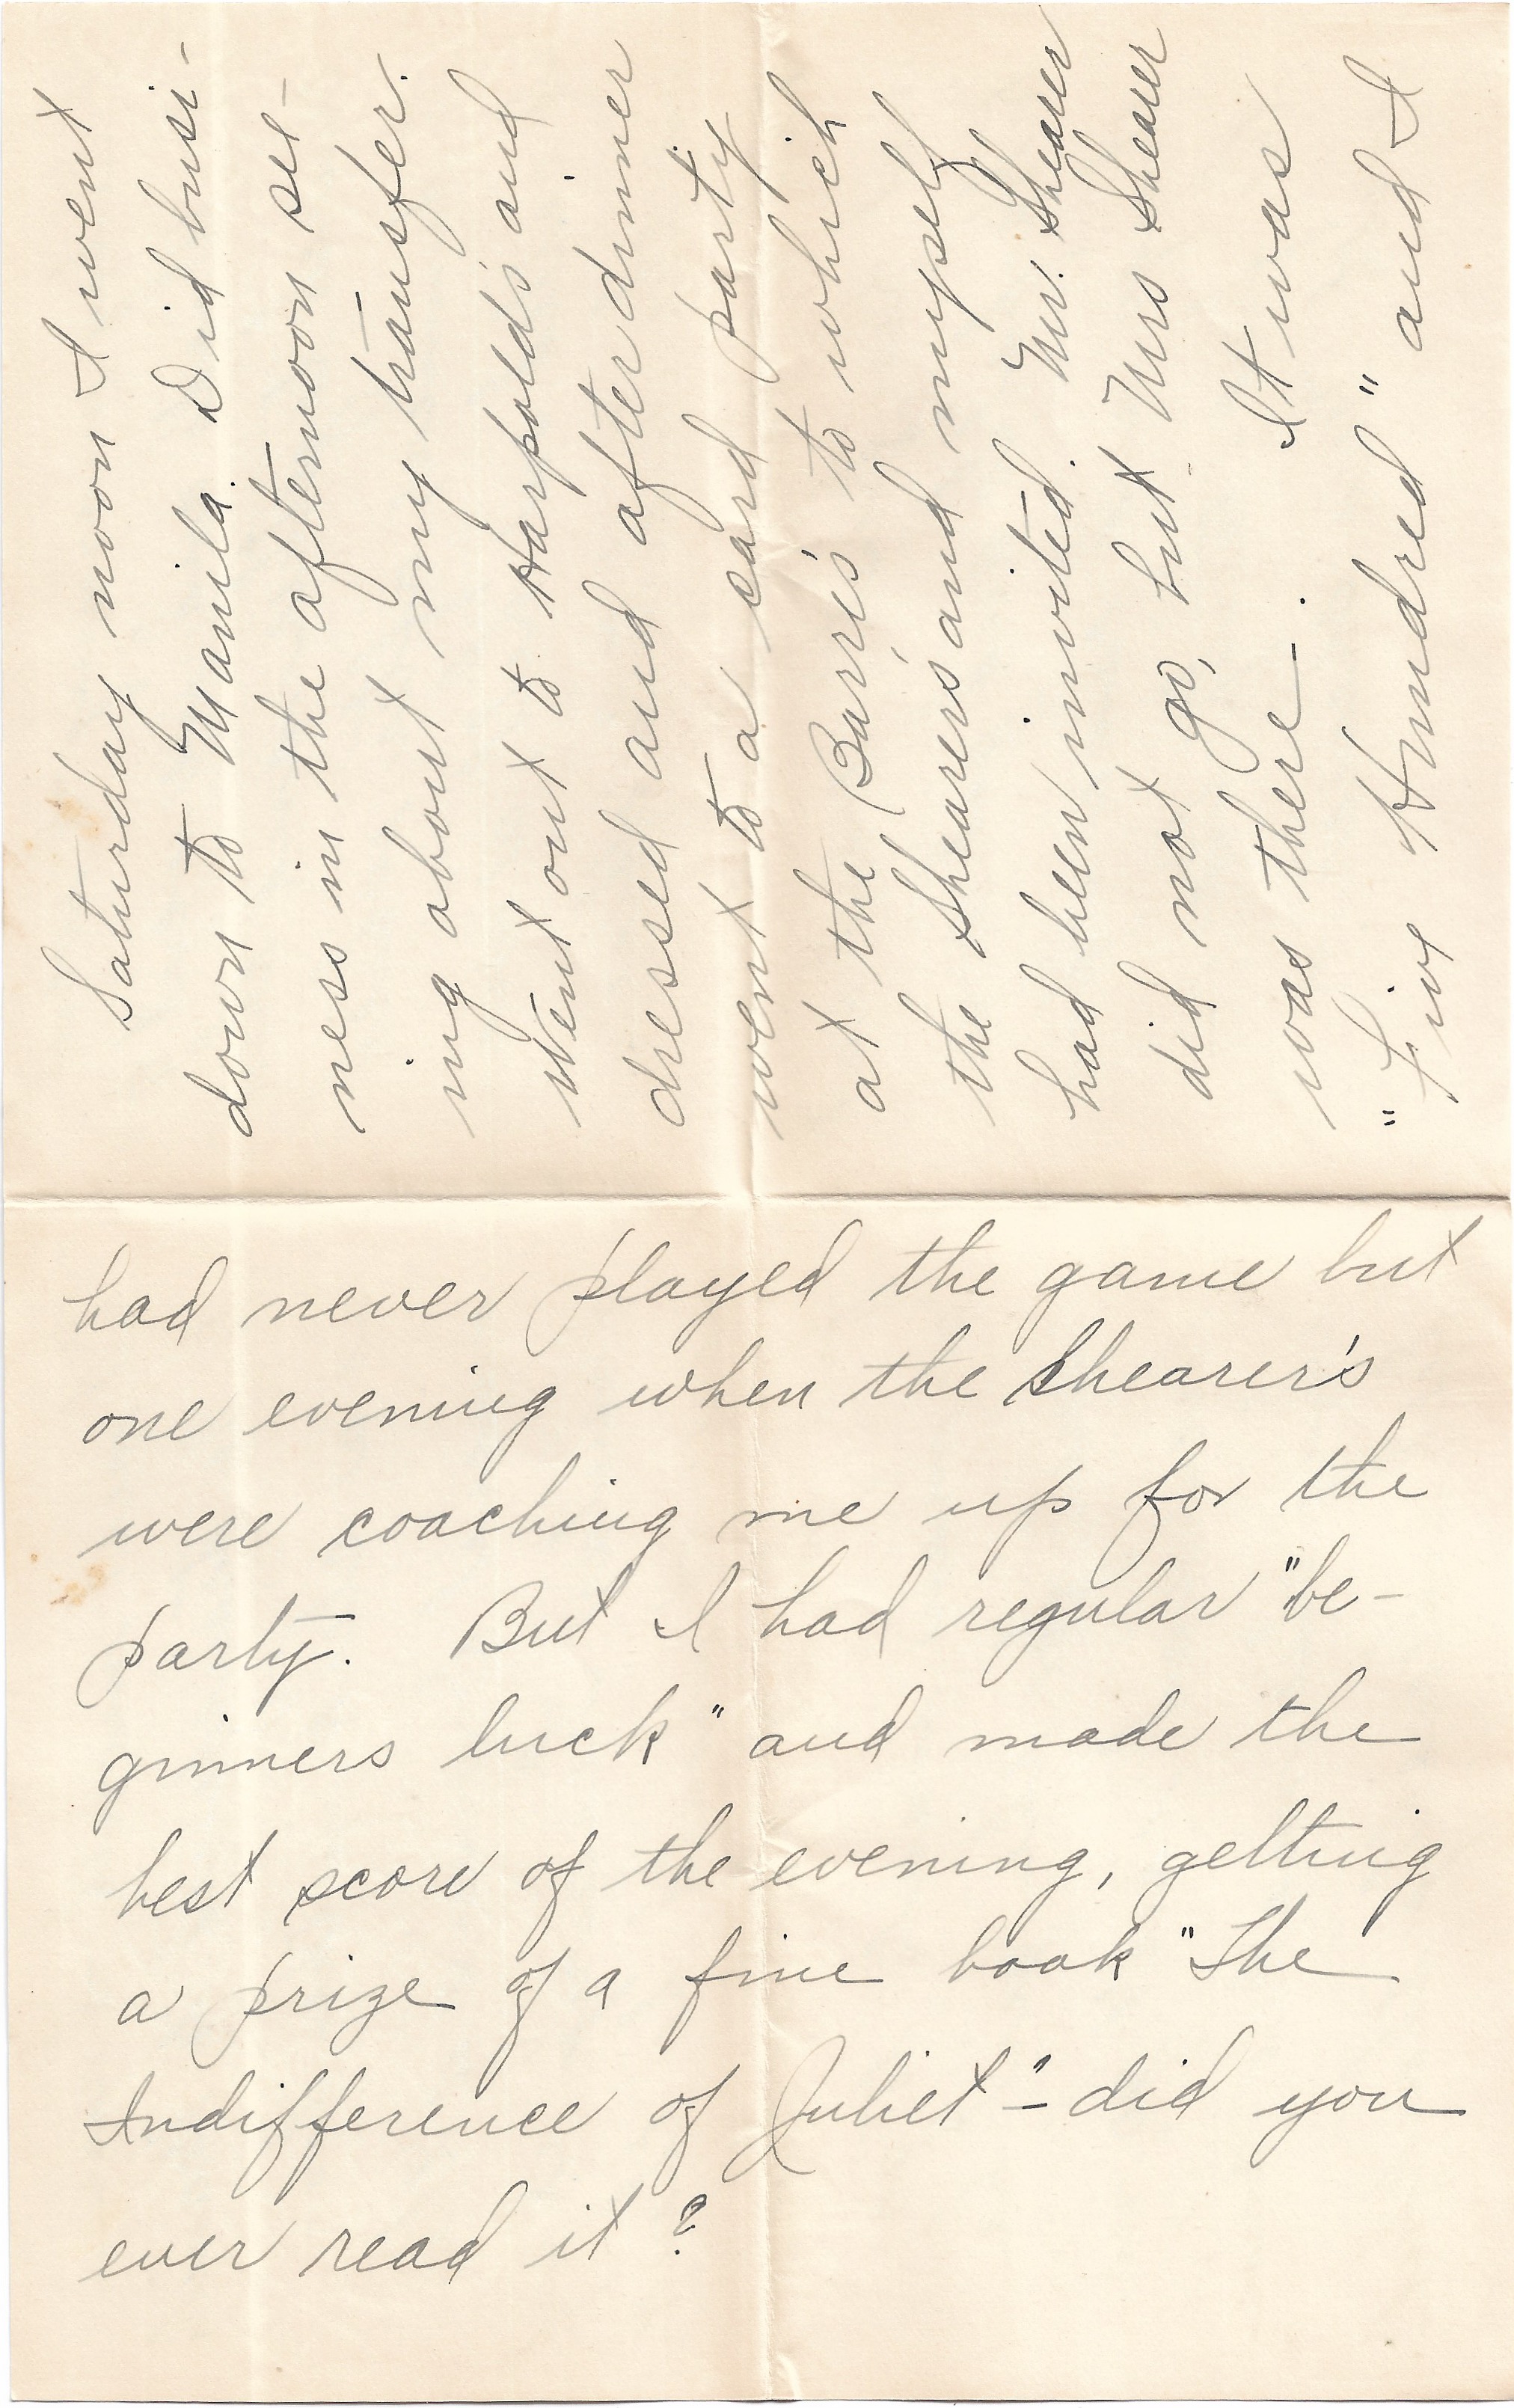 Saturday noon I went
down to Manila. Did busi-
ness in the afternoon se-
ing about my transfer.
Went out to Harpold's and
dressed and after dinner
went to a card party
at the Barre's to which
the Shearers and myself
had been invited. Mr. Shearer
did not go, but Mrs Shearer
was there —. It was
"Five Hundred" and I
had never played the game but
one evening when the Shearer's
were coaching me up for the
party. But I had regular "be-
ginners luck" and made the
best score of the evening, getting
a prize of a fine book "The
Indifference of Juliet" - did you
ever read it?